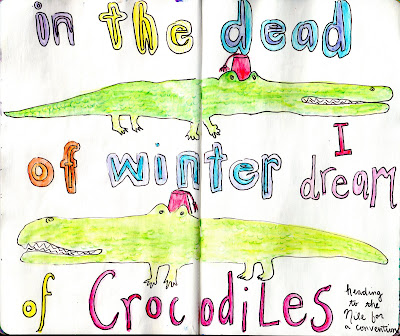 in the dead
of winter I
dream
of CrocodiLes
heading
to the
Nile for
a convention